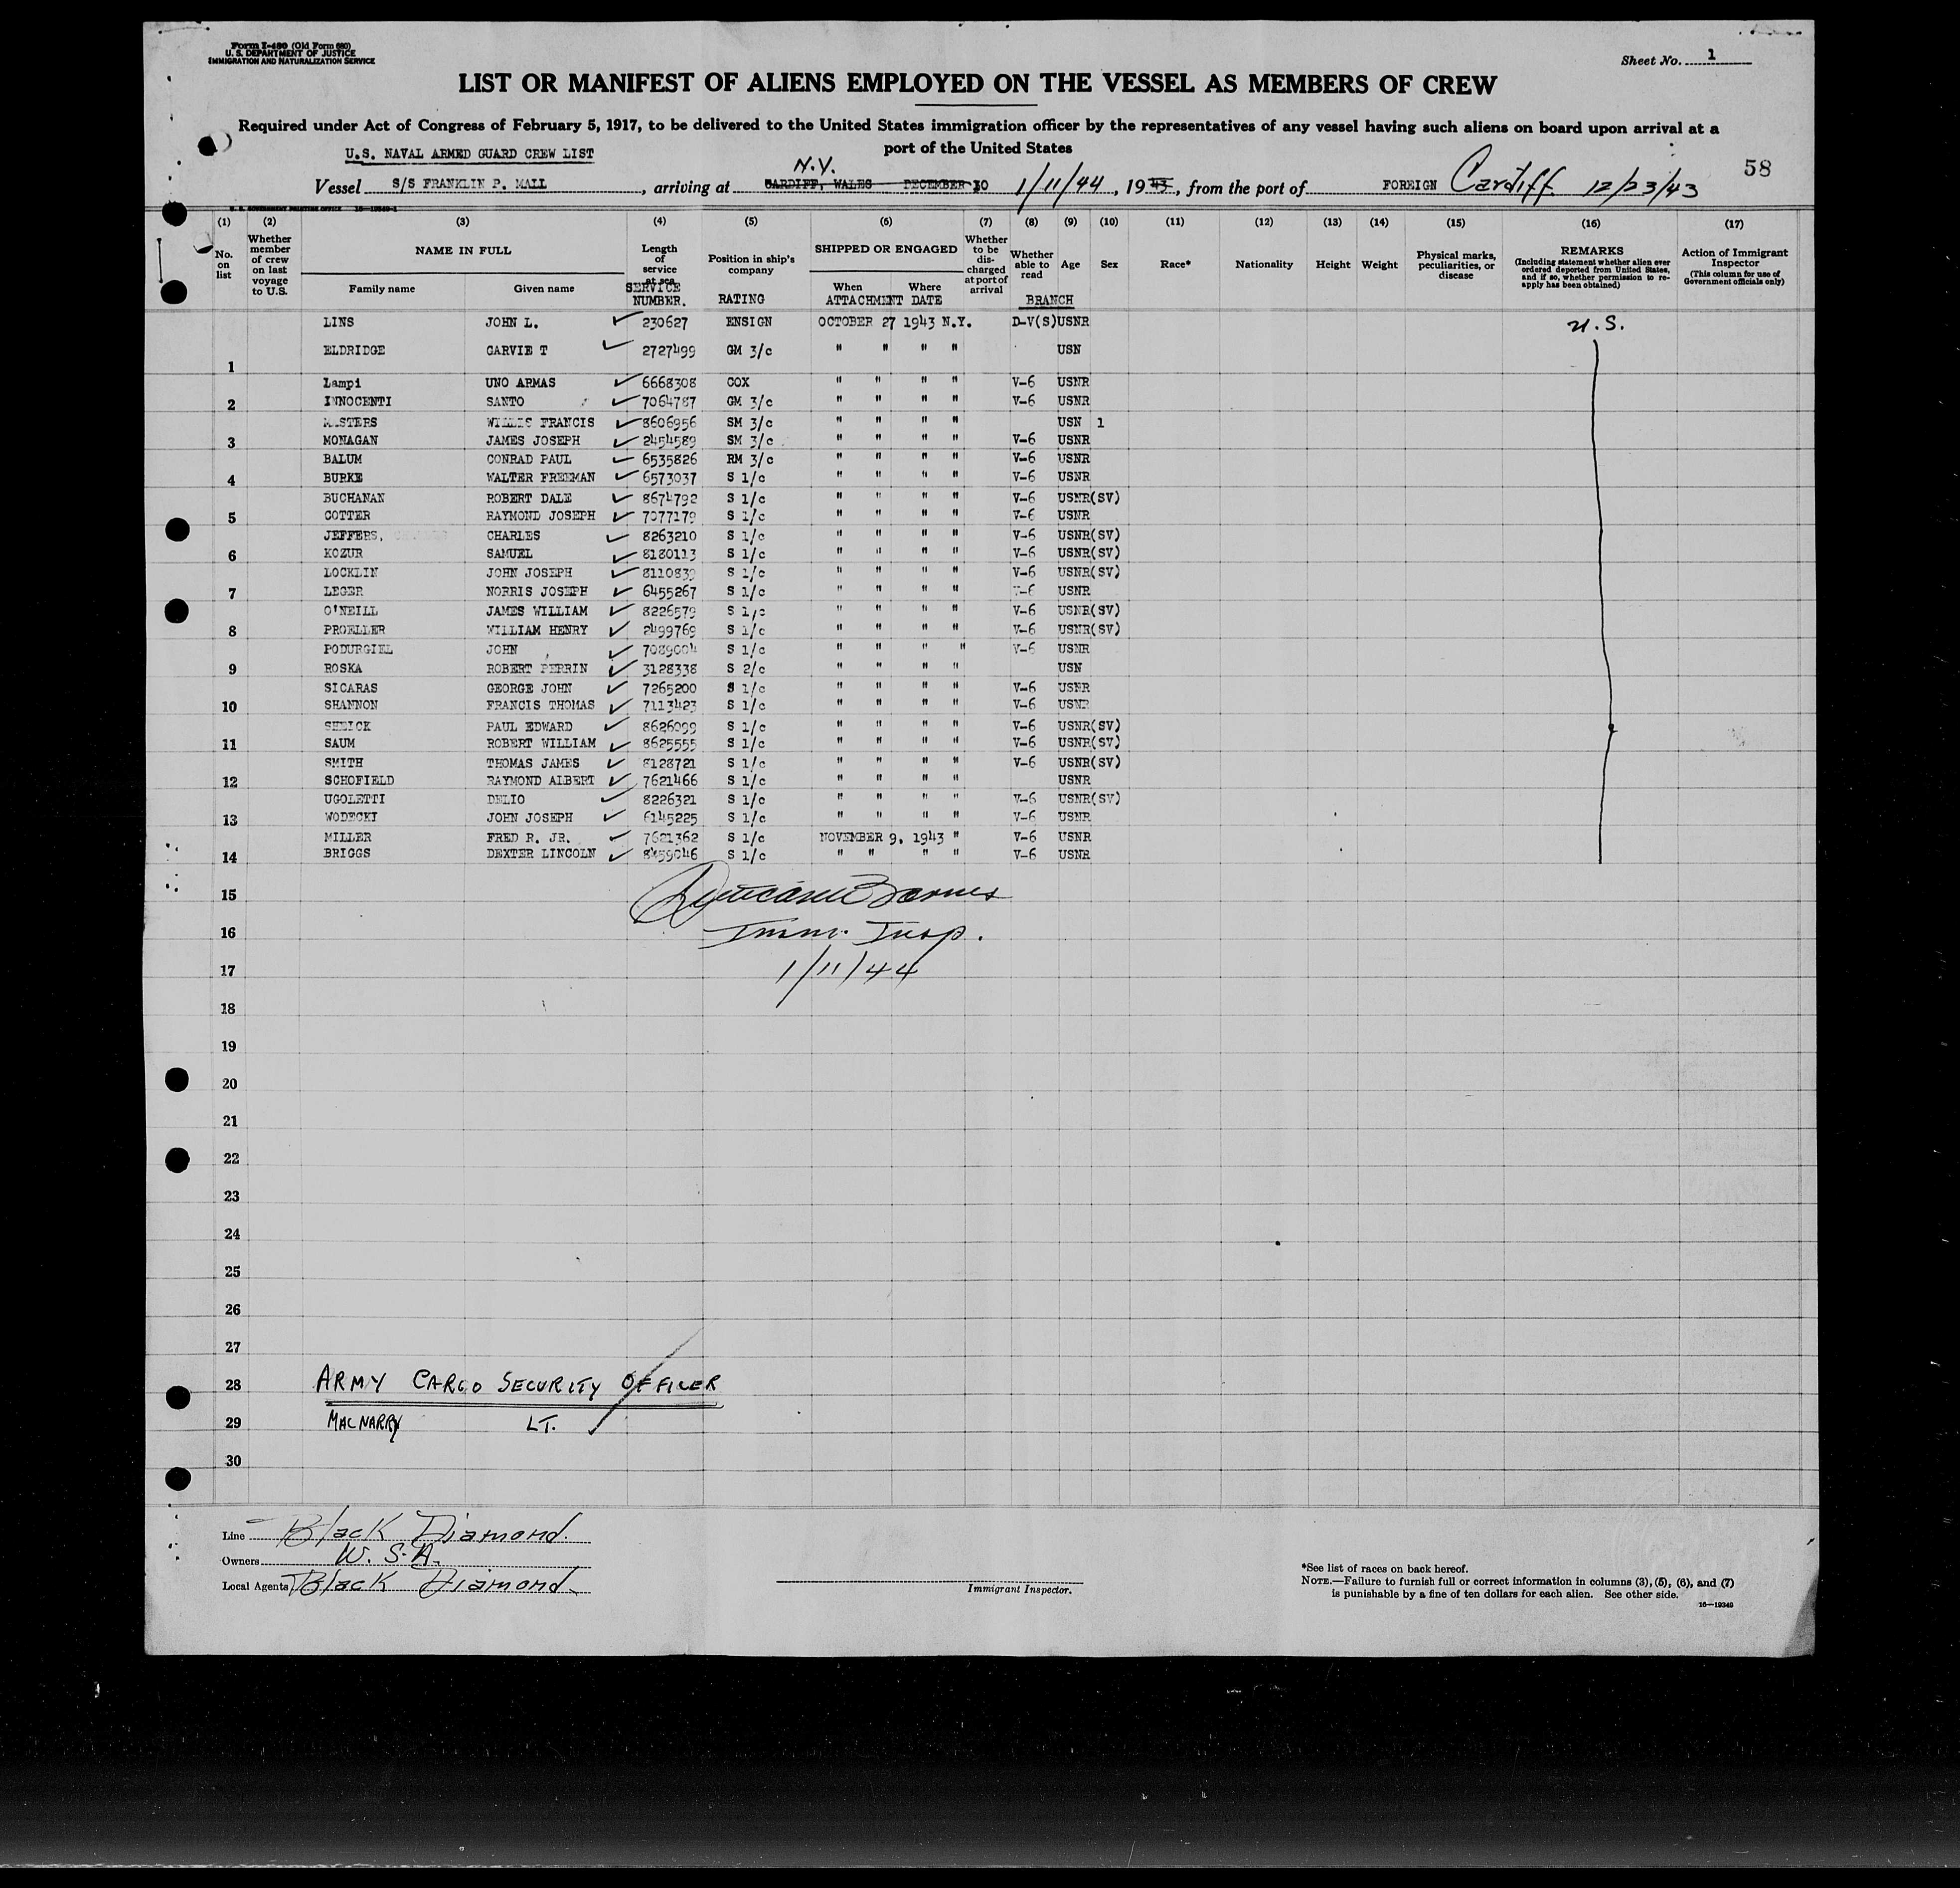 Form I-480 (Old Form 680)
U. S. DEPARTMENT OF JUSTICE
IMMIGRATION AND NATURALIZATION SERVICE
Sheet No. 1
LIST OR MANIFEST OF ALIENS EMPLOYED ON THE VESSEL AS MEMBERS OF CREW
Required under Act of Congress of February 5, 1917, to be delivered to the United States immigration officer by the representatives of any vessel having such aliens on board upon arrival at a
port of the United States
U.S. NAVAL ARMED GUARD CREW LIST
58
N.Y.
Vessel S/S FRANKLIN P. MALL, arriving at CARDIFF, WALES DECEMBER 10 1/11/44, 1943, from the port of FOREIGN Cardiff 12/23/43
U. S. GOVERNMENT PRINTING OFFICE 16-19349-1
(1) (2) (3) (4) (5) (6) (7) (8) (9) (10) (11) (12) (13) (14) (15) (16) (17)
No. on list
Whether member of crew on last voyage to U.S.
NAME IN FULL
Family name Given name
Length of service at sea
SERVICE NUMBER.
Position in ship's company
RATING
SHIPPED OR ENGAGED
When Where
ATTACHMENT DATE
Whether to be discharged at port of arrival
Whether able to read
BRANCH
Age
Sex
Race*
Nationality
Height
Weight
Physical marks, peculiarities, or disease
REMARKS
(Including statement whether alien ever ordered deported from United States, and if so, whether permission to re-apply has been obtained)
Action of Immigrant Inspector
(This column for use of Government officials only)
LINS JOHN L. ✓ 230627 ENSIGN OCTOBER 27 1943 N.Y. D-V(S)USNR U.S.
1 ELDRIDGE GARVIE T ✓ 2727499 GM 3/c " " " " USN
Lampi UNO ARMAS ✓ 6668308 COX " " " " V-6 USNR
2 INNOCENTI SANTO ✓ 7064787 GM 3/c " " " " V-6 USNR
MASTERS WILLIS FRANCIS ✓ 8606956 SM 3/c " " " " USN 1
3 MONAGAN JAMES JOSEPH ✓ 2454589 SM 3/c " " " " V-6 USNR
BALUM CONRAD PAUL ✓ 6535826 RM 3/c " " " " V-6 USNR
4 BURKE WALTER FREEMAN ✓ 6573037 S 1/c " " " " V-6 USNR
BUCHANAN ROBERT DALE ✓ 8674792 S 1/c " " " " V-6 USNR(SV)
5 COTTER RAYMOND JOSEPH ✓ 7077179 S 1/c " " " " V-6 USNR
JEFFERS, CHARLES ✓ 8263210 S 1/c " " " " V-6 USNR(SV)
6 KOZUR SAMUEL ✓ 8180113 S 1/c " " " " V-6 USNR(SV)
LOCKLIN JOHN JOSEPH ✓ 8110839 S 1/c " " " " V-6 USNR(SV)
7 LEGER NORRIS JOSEPH ✓ 6455267 S 1/c " " " " V-6 USNR
O'NEILL JAMES WILLIAM ✓ 8226579 S 1/c " " " " V-6 USNR(SV)
8 PROELLER WILLIAM HENRY ✓ 2499769 S 1/c " " " " V-6 USNR(SV)
PODURGIEL JOHN ✓ 7089004 S 1/c " " " " V-6 USNR
9 ROSKA ROBERT PERRIN ✓ 3128338 S 2/c " " " " USN
SICARAS GEORGE JOHN ✓ 7265200 S 1/c " " " " V-6 USNR
10 SHANNON FRANCIS THOMAS ✓ 7113423 S 1/c " " " " V-6 USNR
SHEICK PAUL EDWARD ✓ 8626099 S 1/c " " " " V-6 USNR(SV)
11 SAUM ROBERT WILLIAM ✓ 8625555 S 1/c " " " " V-6 USNR(SV)
SMITH THOMAS JAMES ✓ 8128721 S 1/c " " " " V-6 USNR(SV)
12 SCHOFIELD RAYMOND ALBERT ✓ 7621466 S 1/c " " " " USNR
UGOLETTI DELIO ✓ 8226321 S 1/c " " " " V-6 USNR(SV)
13 WODECKI JOHN JOSEPH ✓ 6145225 S 1/c " " " " V-6 USNR
MILLER FRED R. JR. ✓ 7621362 S 1/c NOVEMBER 9, 1943 " V-6 USNR
14 BRIGGS DEXTER LINCOLN ✓ 8459046 S 1/c " " " " V-6 USNR
15
16 Imm. Insp.
17 1/11/44
18
19
20
21
22
23
24
25
26
27
28 ARMY CARGO SECURITY OFFICER
29 MACNARRY LT.
30
Line Black Diamond.
Owners W. S. A.
Local Agents Black Diamond
Immigrant Inspector.
*See list of races on back hereof.
NOTE.—Failure to furnish full or correct information in columns (3), (5), (6), and (7)
is punishable by a fine of ten dollars for each alien. See other side.
16—19349